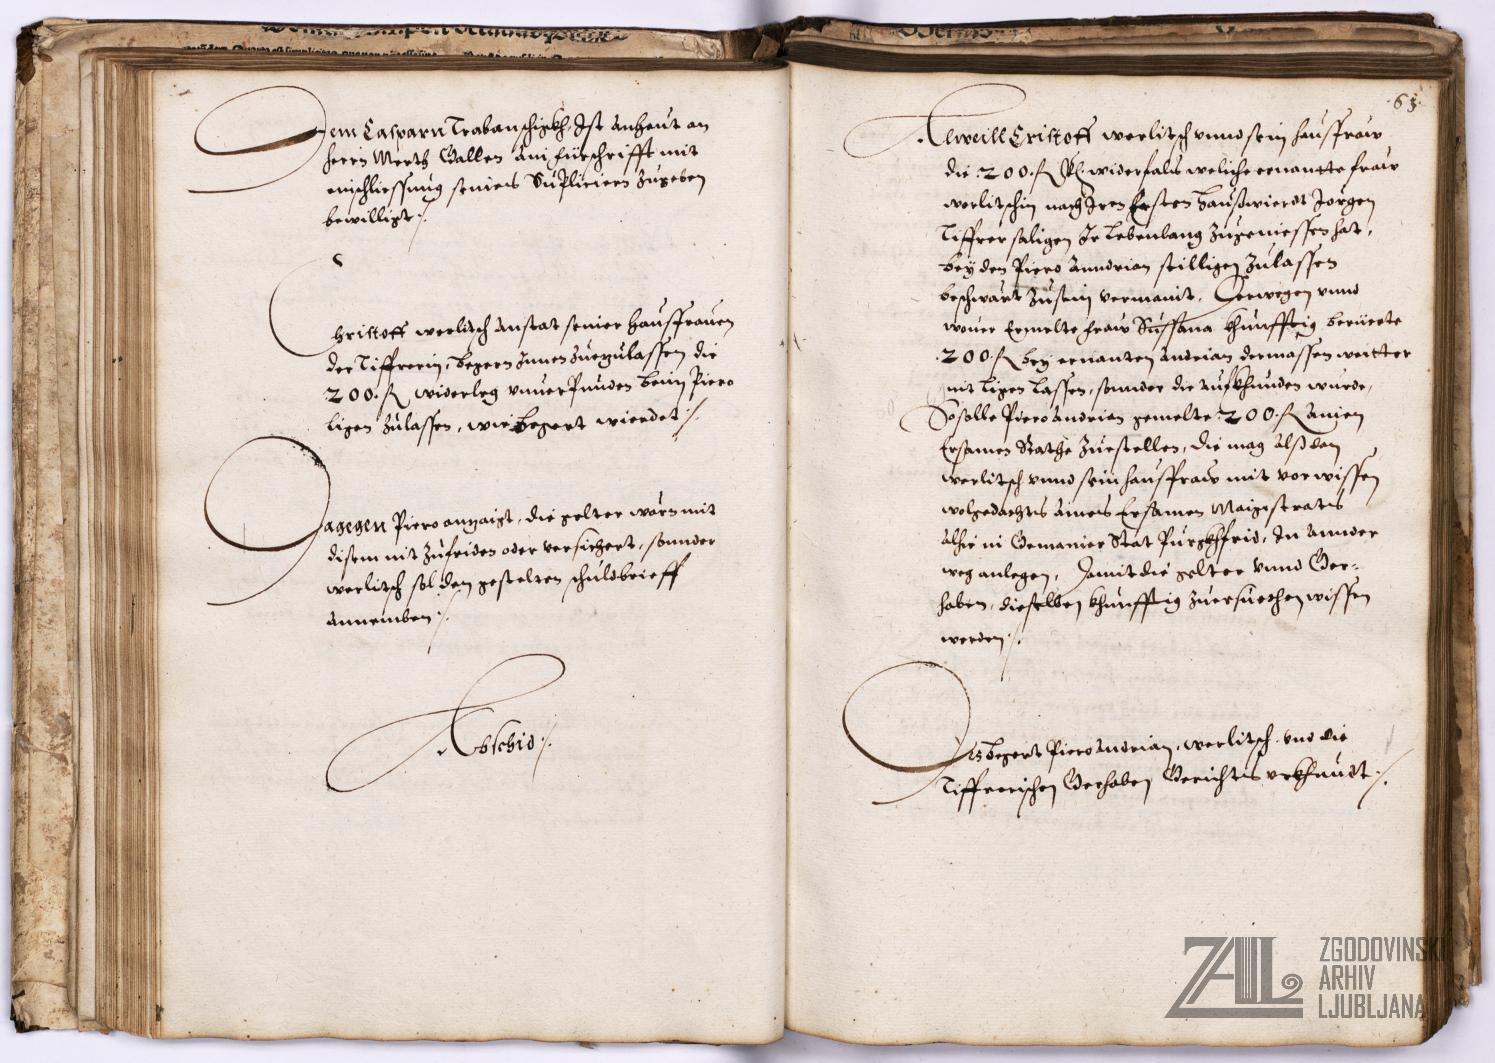 Dem Casparn Trabanschigkh, Ist anheut an
herrn Mertz Gallen Ain fürschrifft mit
einschliessung seines Supliciern zugeben
bewilligt ./.
Christoff werlitsch anstat seiner hausfrauen
der Tiffrerin, begern Innen zuezulassen die
200. fl widerleg unnerpunden beim Piero
ligen zulassen, wie begert wierdet ./.
Dagegen Piero anzaigt, die gelter wärn mit
disem nit zufriden oder versichert, sonnder
werlitsch sol den gestelten schuldbrieff
annemben ./.
Abschid ./.
63.
Alweill Cristoff werlitsch unnd sein hausfraw
die 200. fl widerfals weliche ernantte fraw
werlitschin nach Iren Ersten haußwierdt Jorgen
Tiffrer säligen Ir Lebenlang zugeniessen hat,
bey den Piero Anndrian stilligen zulassen
beschwärt zu sein vermaint. Derwegen unnd
wover Ermelte fraw Sussana khunfftig berüerte
200. fl bey ernanten Andrian dermassen weitter
nit ligen lassen, sonnder die aufkhunden wurde,
So solle Piero Andrian gemelte 200. fl Ainem
Ersamen Rathe zuestellen, die mag alß dan
werlitsch unnd sein hausfraw mit vorwissen
wolgedachts Aines Ersamen Magistratis
alhie in Gemainer Stat Purgkhfrid, In annder
weg anlegen, Damit die gelter unnd Ger-
haben, dieselben khunfftig zuersuechen wissen
werden ./.
Des begert Piero Andrian, werlitsch, und die
Tiffrerischen Gerhaben Gerichts urkhundt ./.
ZAL
ZGODOVINSKI
ARHIV
LJUBLJANA